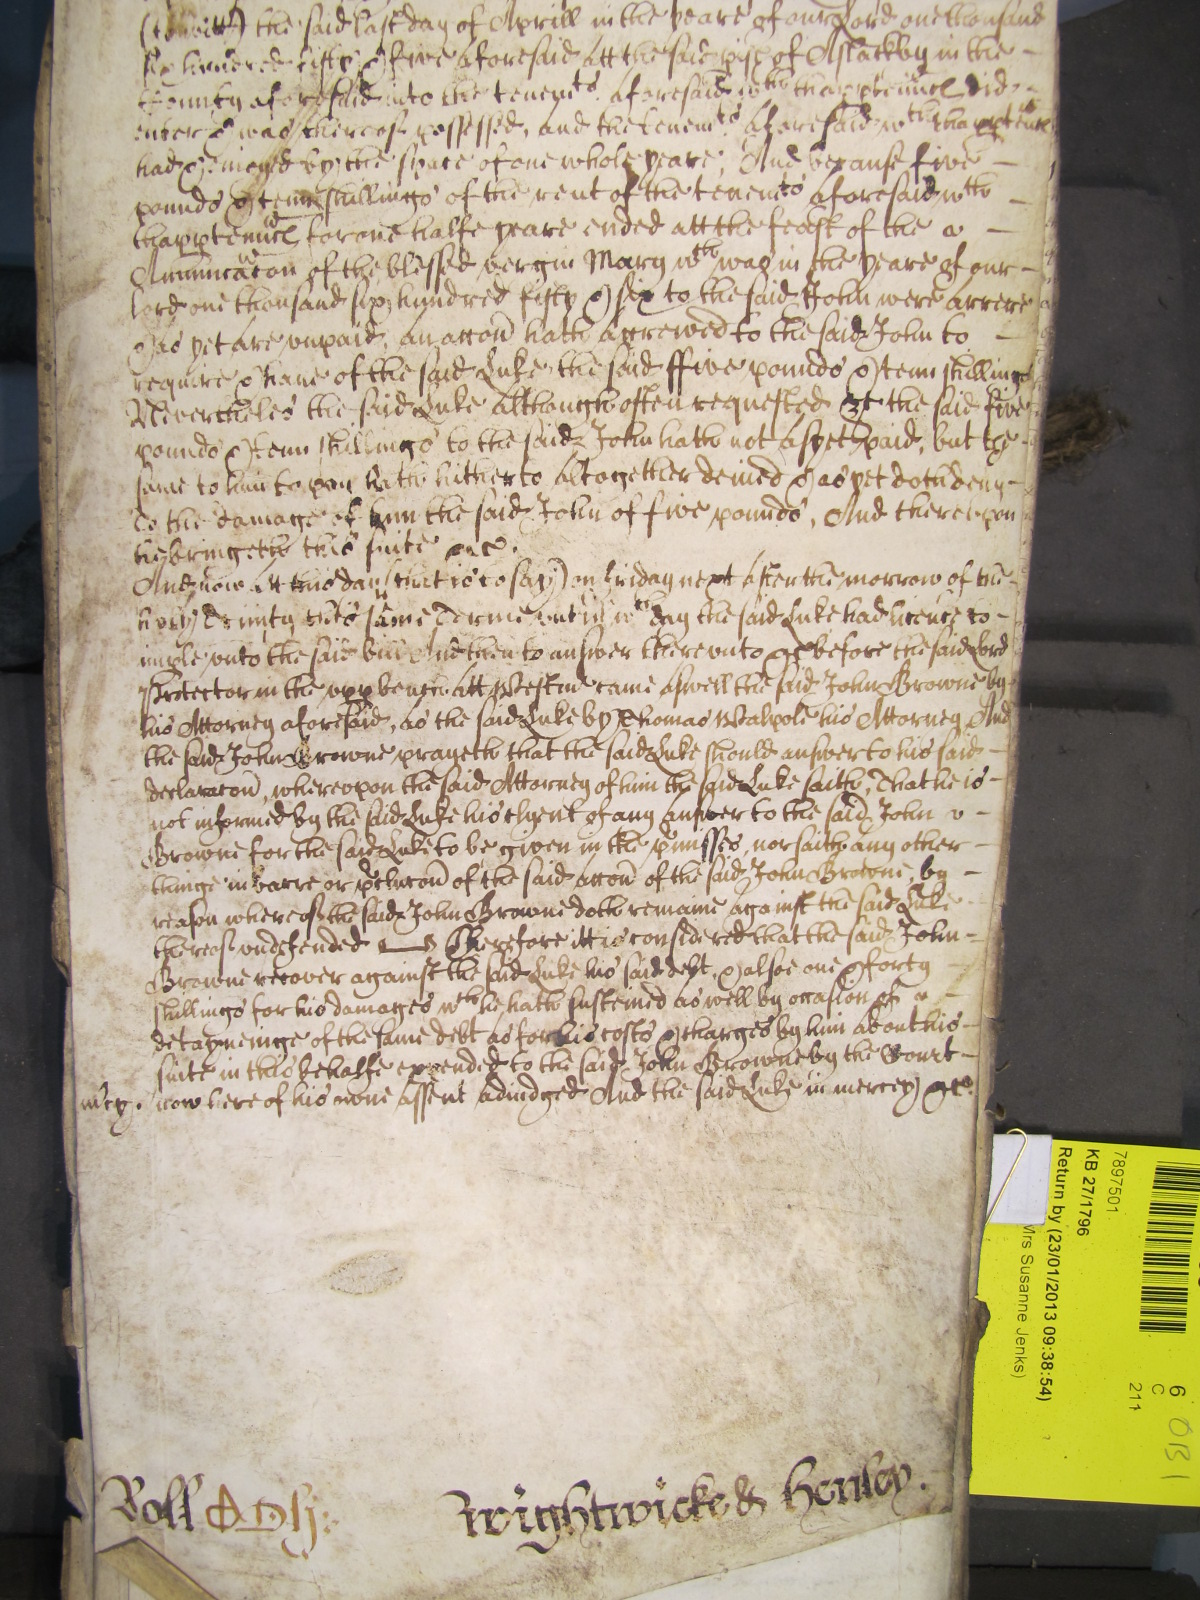 (towitt) the said last day of Aprill in the yeare of our Lord one thousand
six hundred fifty & five aforesaid att the said pish of Aslackby in the
County aforesaid into the tenemts aforesaid wth thapptenncs did
enter & was thereof possessed, and the tenemts aforesaid wth thapptenncs
had & inioyed by the space of one whole yeare, And because five
pounds & tenn shillings of the rent of the tenemts aforesaid wth
thapptenncs for one halfe yeare ended att the feast of the
Annunciacon of the blessed vergin Mary wch was in the yeare of our
lord one thousand six hundred fifty & six to the said John were arrere
& as yet are unpaid, an accon hath accrewed to the said John to
require & have of the said Luke the said ffive pounds & tenn shillings
Neverthelés the said Luke although often requested &c the said five
pounds & tenn shillings to the said John hath not as yet paid, but the
same to him to pay hath hitherto altogether denied & as yet doth deny
to the damage of him the said John of five pounds, And thereupon
he bringeth this suite &c.
And now att this day (that is to say) on Friday next after the morrow of the
holy Trinity this same Terme untill wch day the said Luke had licence to
imple unto the said bill And then to answer thereunto &c before the said Lord
Protector in the upp bench att Westmr came aswell the said John Browne by
his Attorney aforesaid, as the said Luke by Thomas Walpole his Attorney And
the said John Browne prayeth that the said Luke should answer to his said
declaracon, whereupon the said Attorney of him the said Luke saith, That he is
not informed by the said Luke his clyent of any answer to the said John
Browne for the said Luke to be given in the pmisses, nor saith any other
thinge in barre or pclucon of the said accon of the said John Browne, by
reason whereof the said John Browne doth remaine against the said Luke
thereof undefended Therefore itt is considered that the said John
Browne recover against the said Luke his said debt, & alsoe one & forty
shillings for his damages wch he hath susteined as well by occasion of
detayneinge of the same debt as for his costs & charges by him about his
suite in this behalfe expended to the said John Browne by the Court
mcy. now here of his owne assent adiudged And the said Luke in mercey &c.
Roll
Wrightwicke & Henley.
7897501
KB 27/1796
Return by (23/01/2013 09:38:54)
Mrs Susanne Jenks)
6
C
211